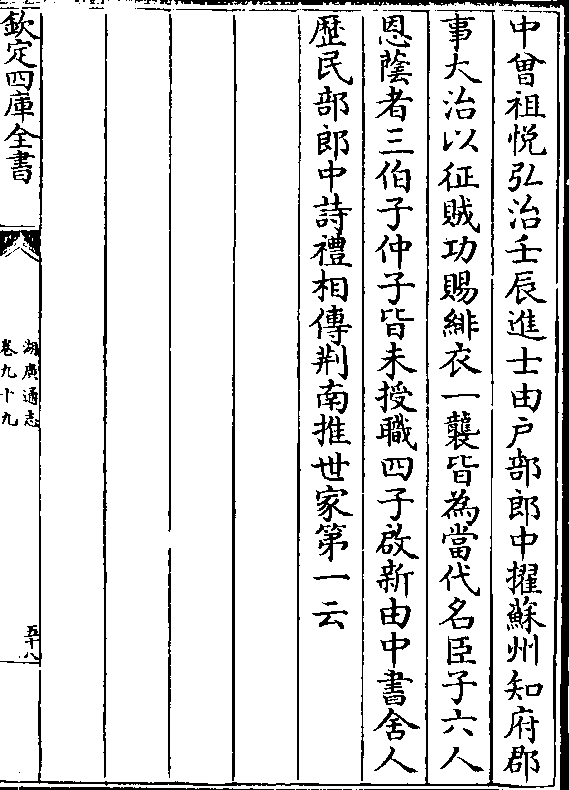 中曾祖悦弘治壬辰進士由户部郎中擢蘇州知府郡
事大治以征賊功賜緋衣一襲皆為當代名臣子六人
恩蔭者三伯子仲子皆未授職四子啟新由中書舍人
歴民部郎中詩禮相傳荆南推世家第一云
欽定四庫全書
湖廣通志
卷九十九
五十八